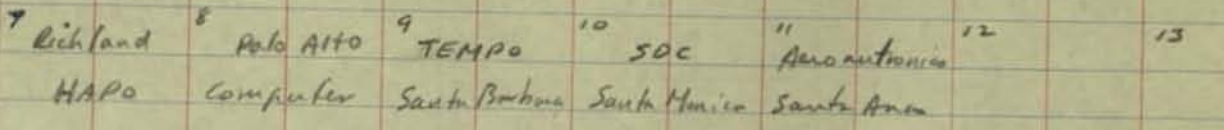 7 Richland 8 Palo Alto 9 TEMPO 10 SDC 11 Aeronutronics 12 13
HAPO Computer Santa Barbara Santa Monica Santa Ana